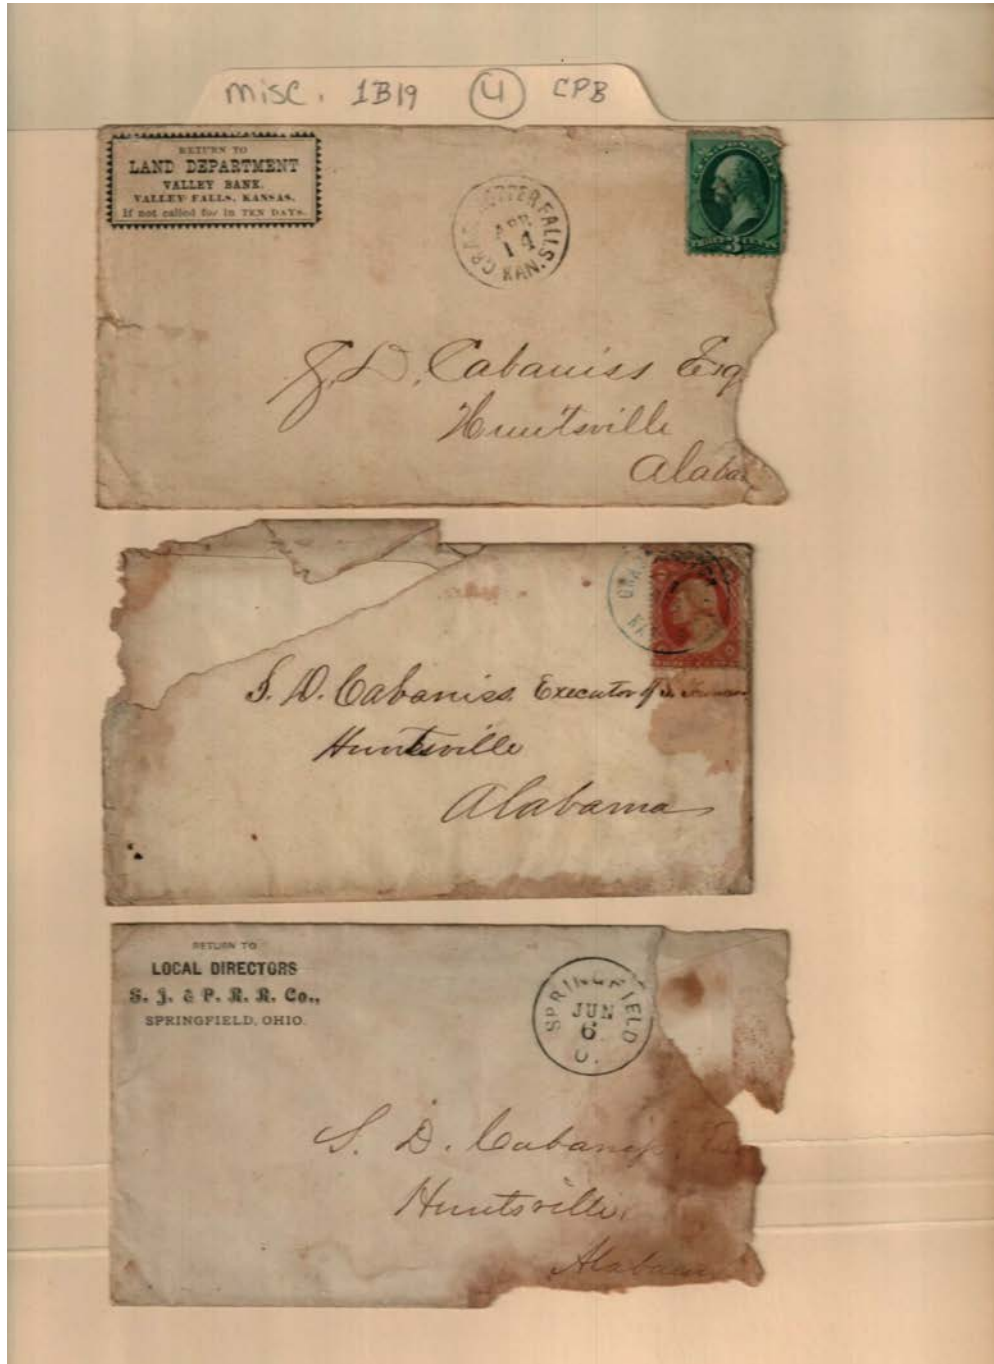 misc. 1B19 4 CPB
RETURN TO
LAND DEPARTMENT
VALLEY BANK.
VALLEY FALLS, KANSAS.
If not called for in TEN DAYS.
GRASSHOPPER FALLS
APR
14
KAN.
3 CENTS
S. D. Cabaniss Esq
Huntsville
Alaba
S. D. Cabaniss Executor of
Huntsville
Alabama
RETURN TO
LOCAL DIRECTORS
S. J. & P. R. R. Co.,
SPRINGFIELD, OHIO.
SPRINGFIELD
JUN
6
O.
S. D. Cabaniss
Huntsville,
Alabam